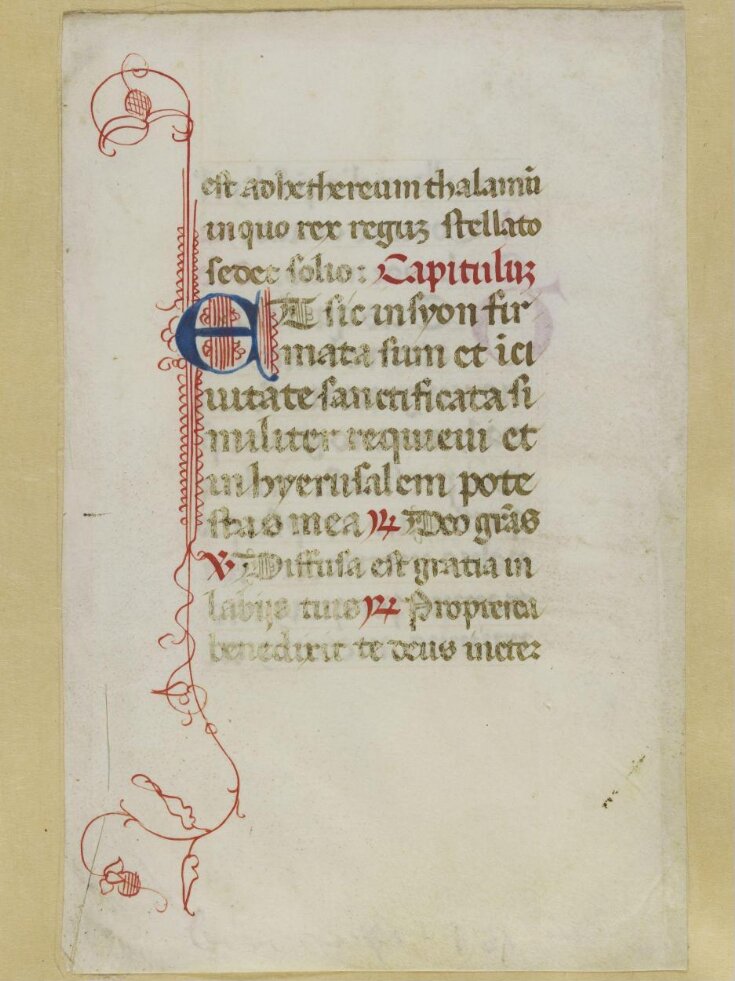 est adhethereum thalamū
in quo rex reguz stellato
sedet solio: Capituluz
ET sic in syon fir
mata sum et i ci
uitate sanctificata si
militer requieui et
in hyerusalem pote
stas mea ℟ Deo grās
℣ Diffusa est gratia in
labijs tuis ℟ Propterea
benedixit te deus ineter